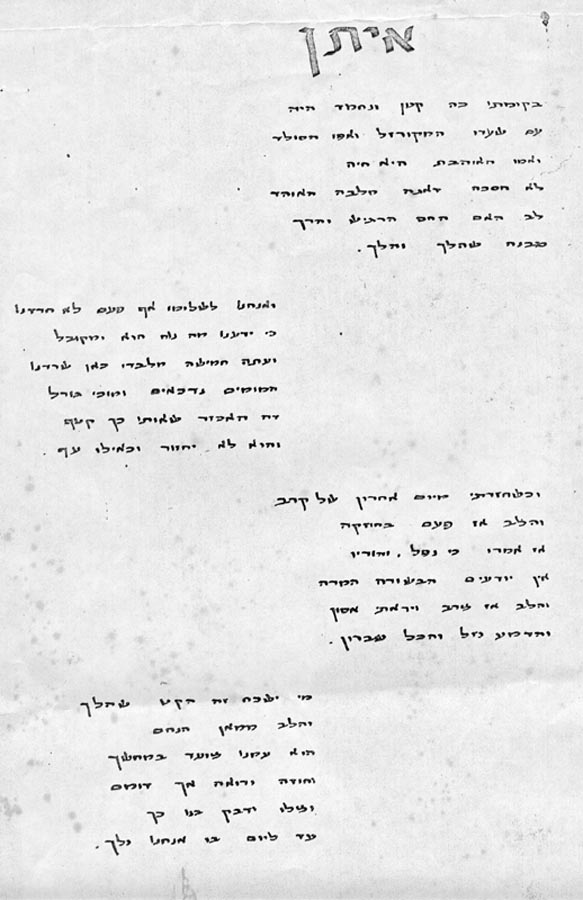 איתן
בקומתי כה קטן ונחמד היה
עם שערו המקורזל ואפו הסולד
ואמו האוהבת היא חיה
לא חסכה דאגה מלבה האוהד
לב האם החם הרגיש והרך
מבנה שהלך והלך.
ואנחנו לשלומו אף פעם לא חרדנו
כי ידענו מה נוח הוא ומקובל
ועתה חמישה מלבדו כאן שרדנו
המומים נדכאים ומוכי גורל
זה האכזר שאותו כך קטף
והוא לא יחזור וכאילו עף.
וכשחזרתי מיום אחרון של קרב
והלב אז פעם בחוזקה
אז אמרו כי נפל, והוריו
אין יודעים הבשורה המרה
והלב אז צורב ויראתי אסון
והדמע נזל והכל שברון.
מי ישכח זה הקט שהלך
והלב ממאן הנחם
הוא עמנו צועד במחשך
וחוזה ורואה אך דומם
וצלו ידבק בנו כך
עד ליום בו אנחנו נלך.